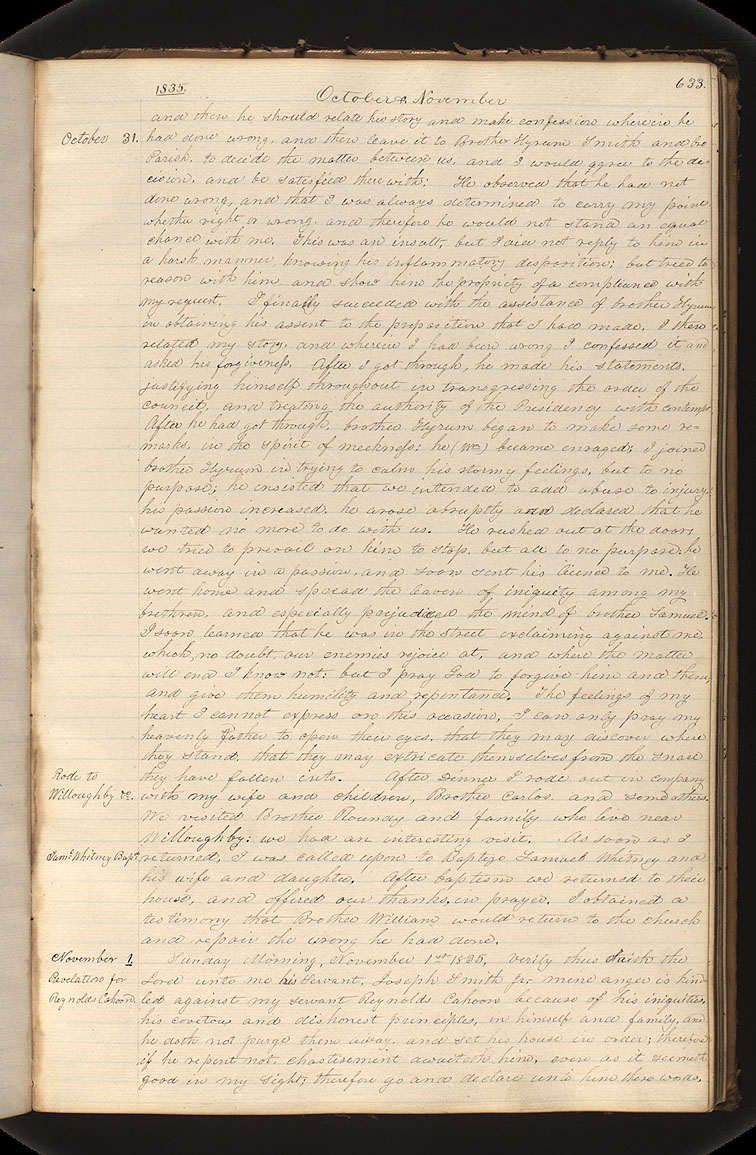 1835. October & November 633.
and then he should relate his story and make confession wherein he
October 31. had done wrong, and then leave it to Brother Hyrum Smith and bro
Parish, to decide the matter between us, and I would agree to the de-
cision, and be satisfied therewith: He observed that he had not
done wrong, and that I was always determined to carry my points
whether right or wrong, and therefore he would not stand an equal
chance with me. This was an insult, but I did not reply to him in
a harsh manner, knowing his inflammatory disposition; but tried to
reason with him, and show him the propriety of a compliance with
my request. I finally succeeded with the assistance of brother Hyrum
in obtaining his assent to the proposition that I had made. I then
related my story, and wherein I had been wrong I confessed it and
asked his forgiveness. After I got through, he made his statements,
justifying himself throughout in transgressing the order of the
council, and treating the authority of the Presidency with contempt
After he had got through, brother Hyrum began to make some re=
marks, in the spirit of meekness; he (Wm) became enraged; I joined
brother Hyrum in trying to calm his stormy feelings, but to no
purpose; he insisted that we intended to add abuse to injury;
his passion increased, he arose abruptly and declared that he
wanted no more to do with us. He rushed out at the door;
we tried to prevail on him to stop, but all to no purpose: he
went away in a passion, and soon sent his licence to me. He
went home and spread the leaven of iniquity among my
brethren, and especially prejudiced the mind of brother Samuel.
I soon learned that he was in the street exclaiming against me
which, no doubt, our enemies rejoice at, and where the matter
will end I know not: but I pray God to forgive him and them,
and give them humility and repentance. The feelings of my
heart I cannot express on this occasion, I can only pray my
heavenly Father to open their eyes, that they may discover where
they stand, that they may extricate themselves from the snare
Rode to they have fallen into. After Dinner I rode out in company
Willoughby &c. with my wife and children, Brother Carlos and some others.
We visited Brother Roundy and family who live near
Willoughby; we had an interesting visit. As soon as I
Saml. Whitney Bapt. returned, I was called upon to Baptize Samuel Whitney and
his wife and daughter. After baptism we returned to their
house, and offered our thanks, in prayer. I obtained a
testimony that Brother William would return to the church
and repair the wrong he had done.
November 1. Sunday Morning, November 1st 1835, Verily thus saith the
Revelation for Lord unto me his Servant, Joseph Smith Jr. mine anger is kind-
Reynolds Cahoon led against my servant Reynolds Cahoon because of his iniquities,
his covetous and dishonest principles, in himself and family, and
he doth not purge them away, and set his house in order; therefore
if he repent not, chastisement awaiteth him, even as it seemeth
good in my sight; therefore go and declare unto him these words.